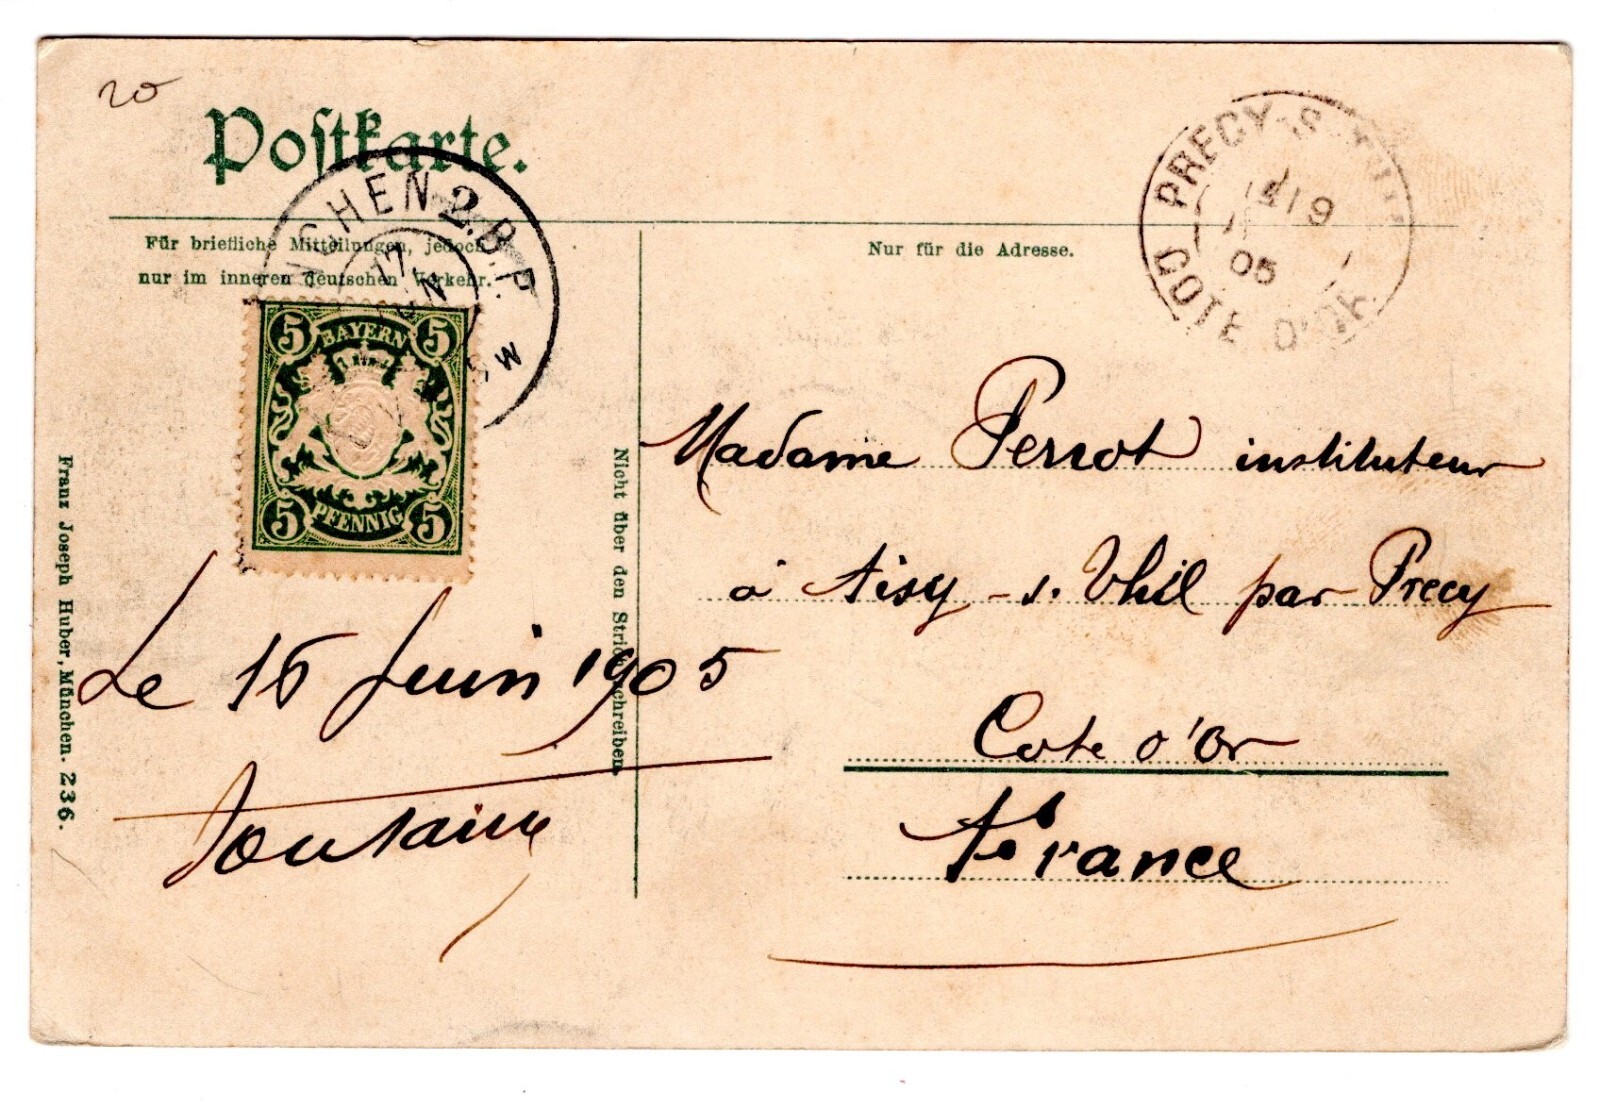 20
Postkarte.
Für briefliche Mitteilungen, jedoch
nur im inneren deutschen Verkehr.
NCHEN 2. B.P.
17
JUN
5 5
BAYERN
PFENNIG
5 5
Nur für die Adresse.
PRECY-S
19
05
COTE D'OR
Madame Perrot instituteur
à Aisy - s. Thil par Precy
Cote d'Or
France
Le 16 Juin 1905
Nicht über den Strich schreiben.
Franz Joseph Huber, München. 236.